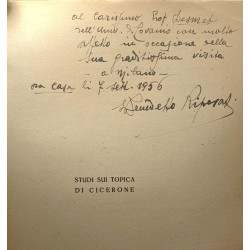 al carissimo Prof. Desmet
dell'Univ. di Lovanio con molto
affetto in occasione della
sua graditissima visita
- a Milano -
casa li 7 sett. 1956
Benedetto Riposati
STUDI SUI TOPICA
DI CICERONE